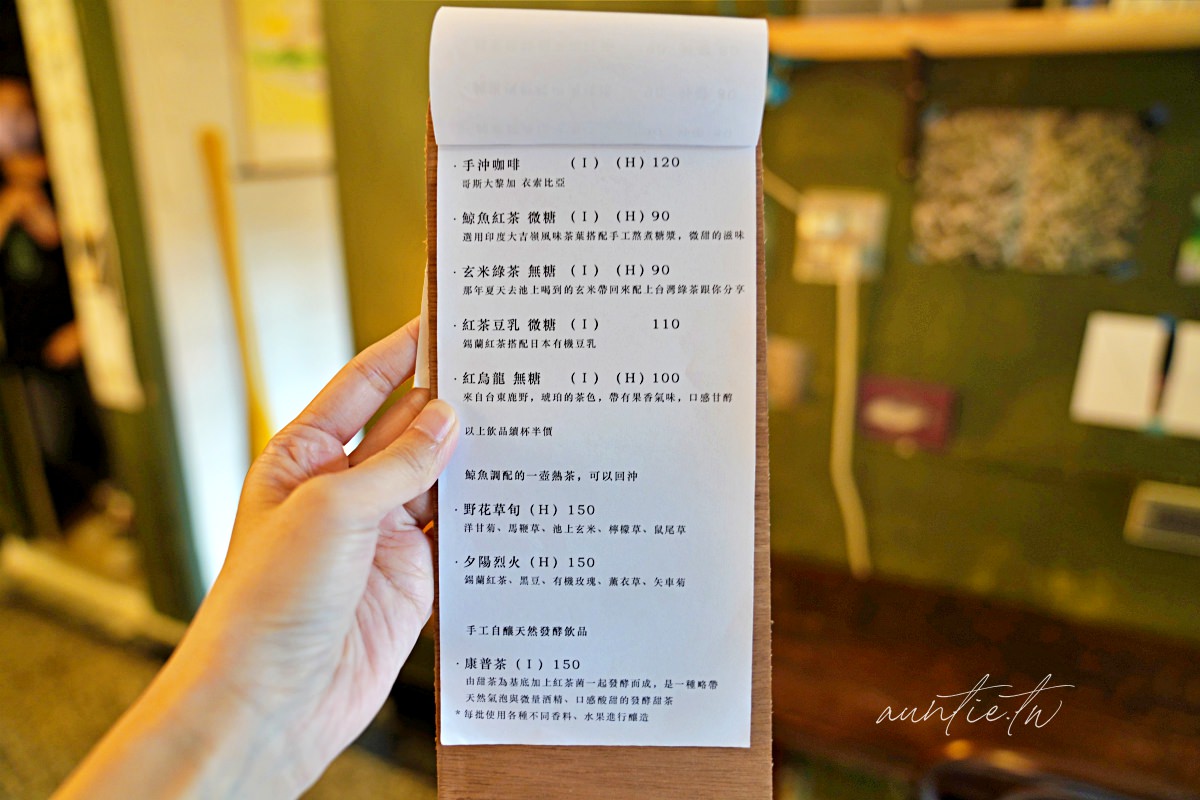 ·手沖咖啡 (I) (H) 120
哥斯大黎加 衣索比亞
·鯨魚紅茶 微糖 (I) (H) 90
選用印度大吉嶺風味茶葉搭配手工熬煮糖漿，微甜的滋味
·玄米綠茶 無糖 (I) (H) 90
那年夏天去池上喝到的玄米帶回來配上台灣綠茶跟你分享
·紅茶豆乳 微糖 (I) 110
錫蘭紅茶搭配日本有機豆乳
·紅烏龍 無糖 (I) (H) 100
來自台東鹿野，琥珀的茶色，帶有果香氣味，口感甘醇
以上飲品續杯半價
鯨魚調配的一壺熱茶，可以回沖
·野花草句 (H) 150
洋甘菊、馬鞭草、池上玄米、檸檬草、鼠尾草
·夕陽烈火 (H) 150
錫蘭紅茶、黑豆、有機玫瑰、薰衣草、矢車菊
手工自釀天然發酵飲品
·康普茶 (I) 150
由甜茶為基底加上紅茶菌一起發酵而成，是一種略帶
天然氣泡與微量酒精、口感酸甜的發酵甜茶
*每批使用各種不同香料、水果進行釀造
auntie.tw